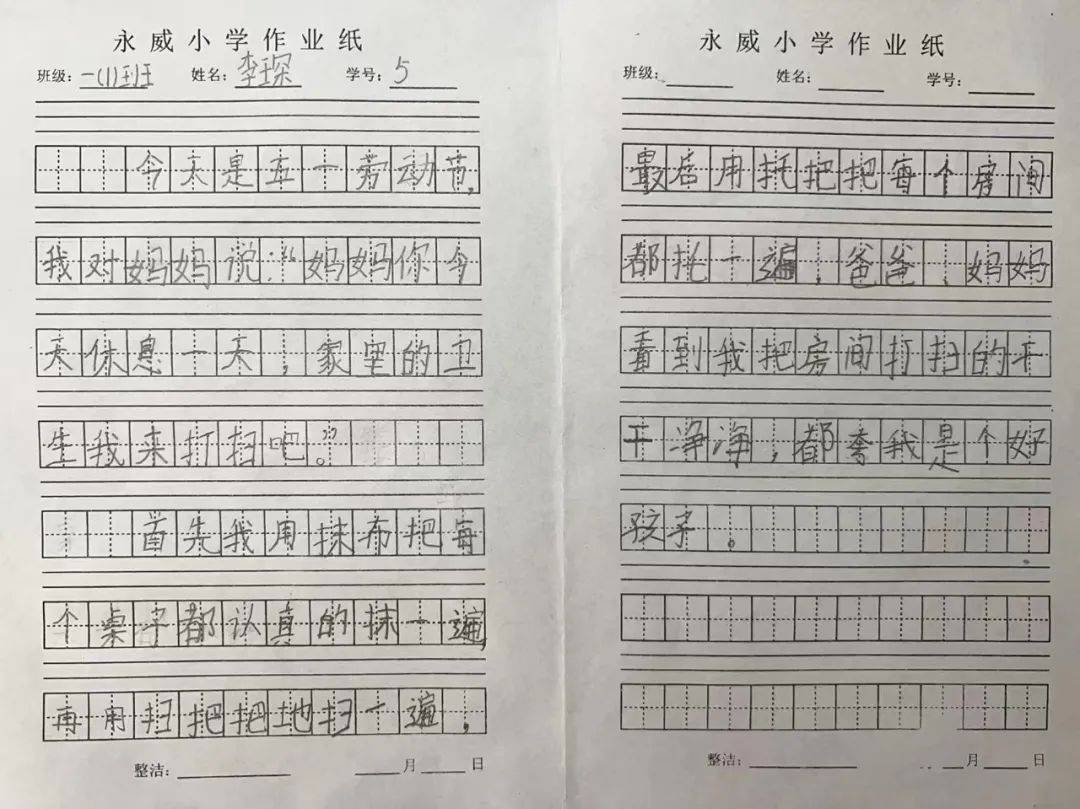 永威小学作业纸
班级：一(1)班 姓名：李琛 学号：5
今天是五一劳动节，
我对妈妈说：“妈妈你今
天休息一天，家里的卫
生我来打扫吧。”
首先我用抹布把每
个桌子都认真的抹一遍，
再用扫把把地扫一遍，
整洁： 月 日
永威小学作业纸
班级： 姓名： 学号：
最后用托把把每个房间
都托一遍，爸爸、妈妈
看到我把房间打扫的干
干净净，都夸我是个好
孩子。
整洁： 月 日